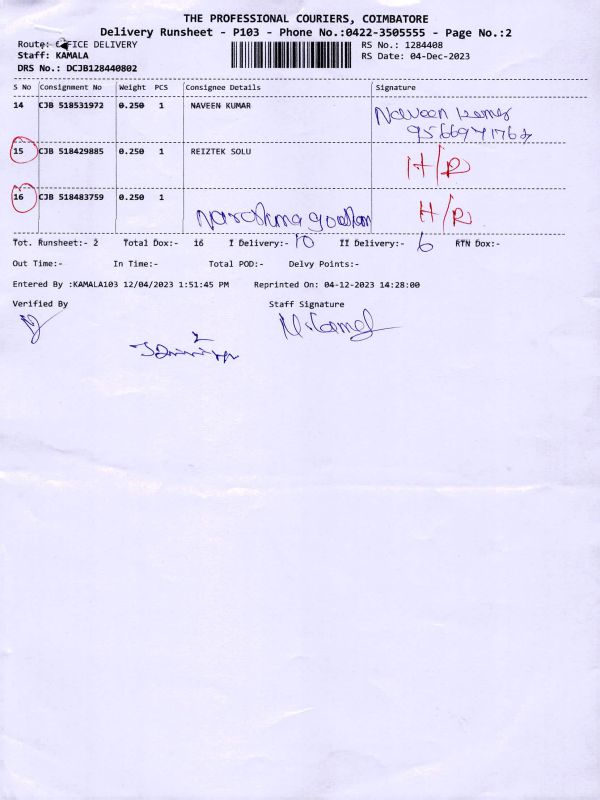 THE PROFESSIONAL COURIERS, COIMBATORE
Delivery Runsheet - P103 - Phone No.:0422-3505555 - Page No.:2
Route: OFFICE DELIVERY RS No.: 1284408
Staff: KAMALA RS Date: 04-Dec-2023
DRS No.: DCJB128440802
S No Consignment No Weight PCS Consignee Details Signature
14 CJB 518531972 0.250 1 NAVEEN KUMAR Naveen Kumar
15 CJB 518429885 0.250 1 REIZTEK SOLU H/R
16 CJB 518483759 0.250 1 H/R
Tot. Runsheet:- 2 Total Dox:- 16 I Delivery:- 10 II Delivery:- 6 RTN Dox:-
Out Time:- In Time:- Total POD:- Delvy Points:-
Entered By :KAMALA103 12/04/2023 1:51:45 PM Reprinted On: 04-12-2023 14:28:00
Verified By Staff Signature